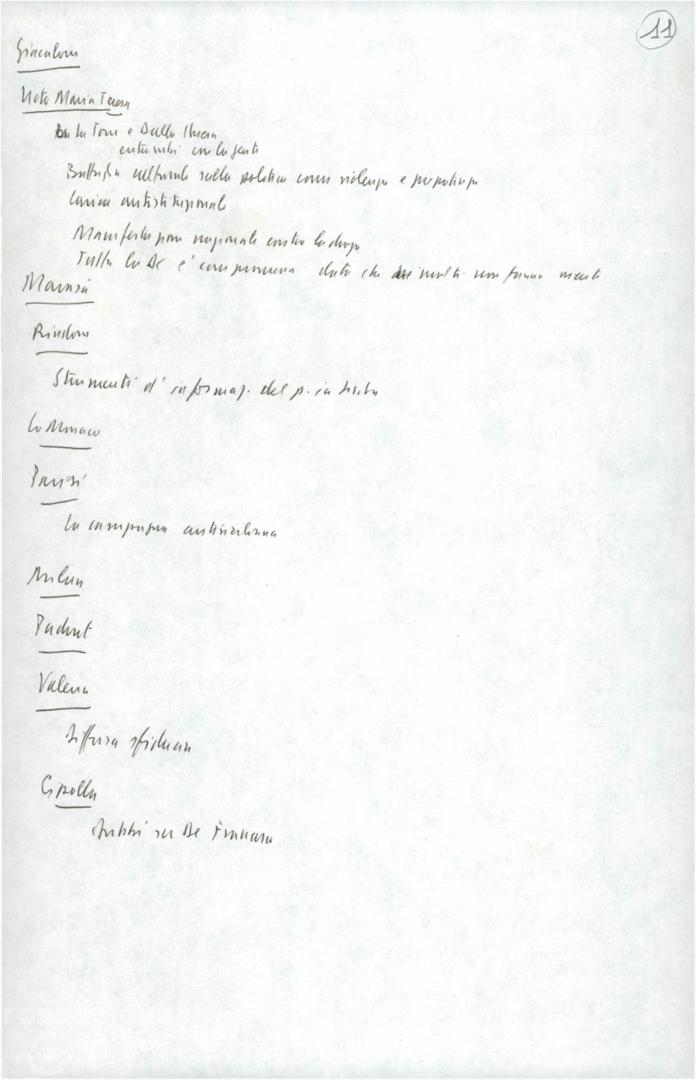 11
Giacalone
Noto Maria Teresa
La Torre e Dalla Chiesa
entrambi con la gente
Battaglia culturale sulla politica come violenza e prepotenza
Carica antistituzionale
Manifestazione nazionale contro la droga
Tutta la DC è compromessa dato che molti non fanno
Rindone
Strumenti d'informaz. del p. in Sicilia
Lo Monaco
Parisi
La campagna antisiciliana
Valeria
Diffusa sfiducia
Cipolla
Dubbi su De Francesco